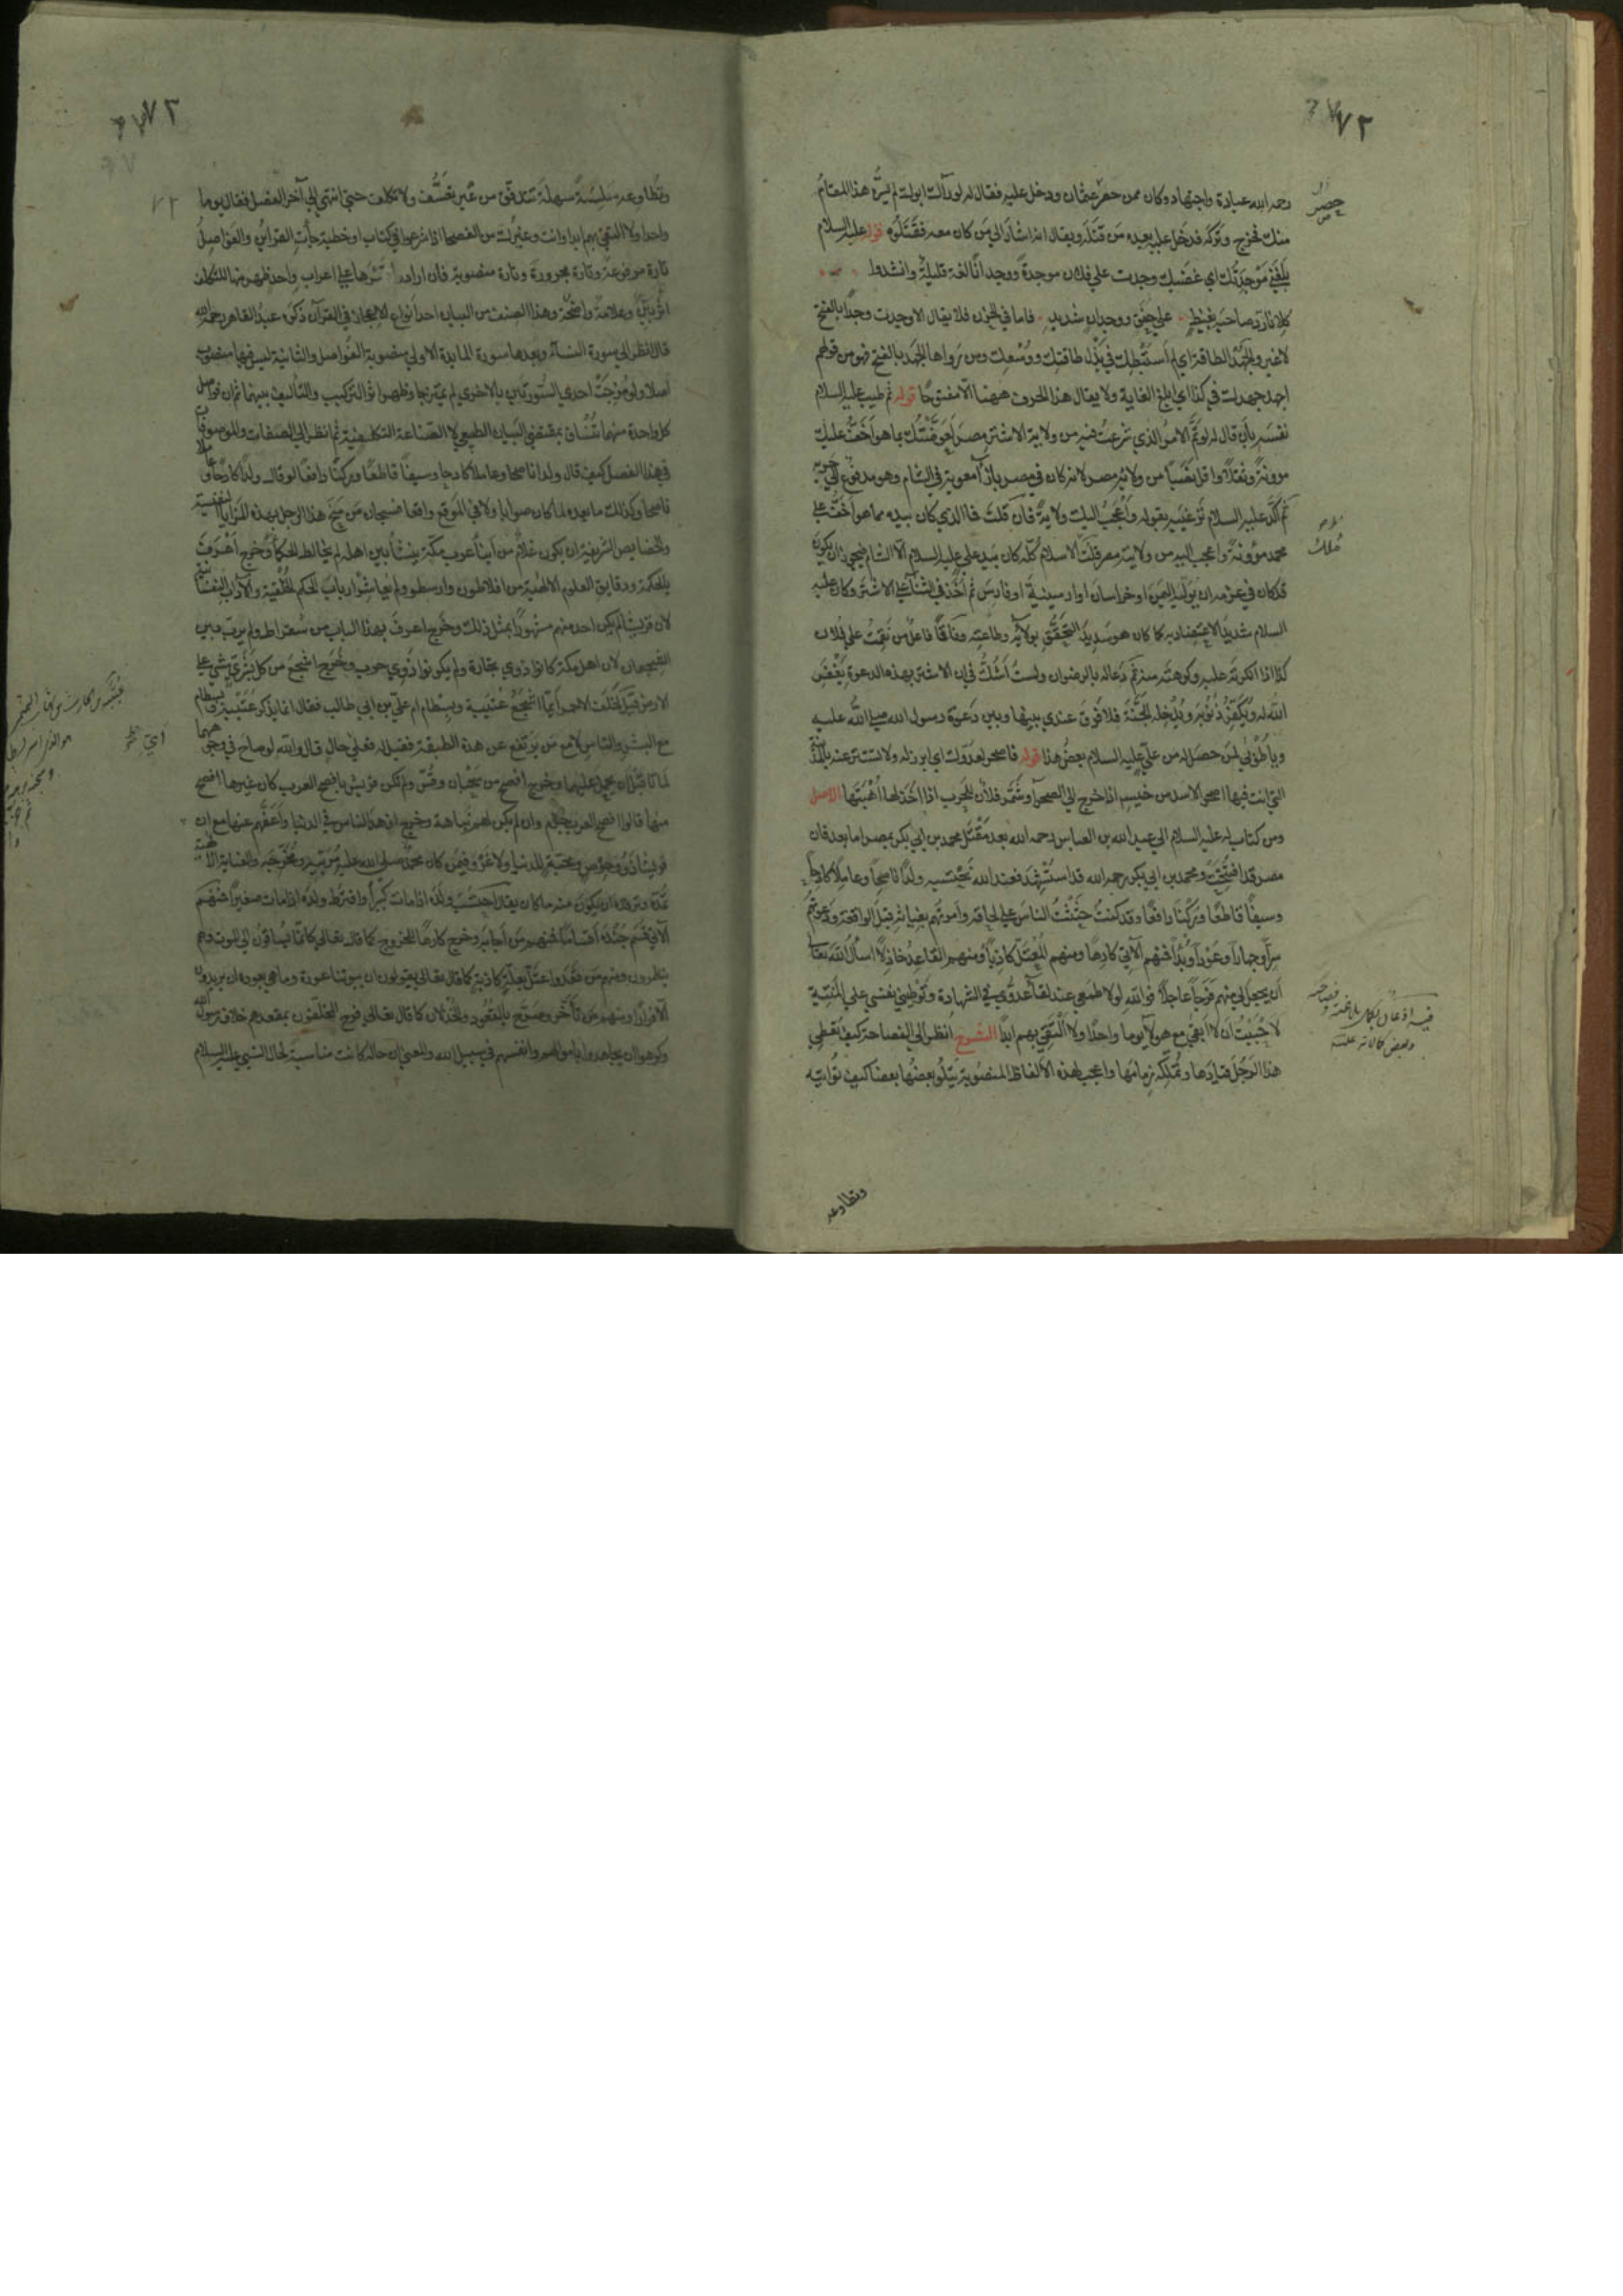 ٧٢
رحمه الله عبادة واجتهاد وكان ممن حضر عثمان ودخل عليه فقال له لو رآك ابوك لم يسره هذا المقام
حصر
منك فخرج وتركه فدخل عليه بعده من قتله ويقال انه اشار الي من كان معه فقتلوه قوله عليه السلام
بلغني موجدتك اي غضبك وجدت علي فلان موجدة ووجدانا لغة قليلة وانشدوا
كلانا رد صاحبه بغيظ علي حنق ووجدان شديد فاما في الحزن فلا يقال الا وجدت وجدا بالفتح
لا غير والجهد الطاقة اي لم استبطك في بذل طاقتك ووسعك ومن رواها الجهد بالفتح فهو من قولهم
اجهد جهدك في كذا اي ابلغ الغاية ولا يقال هذا الحرف ههنا الا مفتوحا قوله ثم طيب عليه السلام
نفسه بان قال له لو تم الامر الذي شرعت فيه من ولاية الاشتر مصر لعوضتك بما هو اخف عليك
موونة وثقلا واقل نصبا من ولاية مصر لانه كان في مصر بازآ معوية في الشام وهو مدفوع الي حربه
ثم اكد عليه السلام ترغيبه بقوله واعجب اليك ولاية فان قلت فما الذي كان بيده مما هو اخف علي
محمد موونة واعجب اليه من ولاية مصر قلت الاسلام كله كان بيد علي عليه السلام الا الشام فيجوز ان يكون
ملك
قد كان في عزمه ان يوليه اليمن او خراسان او ارمينية او فارس ثم اخذ في الثنآ علي الاشتر وكان عليه
السلام شديد الاعتضاد به كما كان هو شديد التحقق بولايته وطاعته وناقما فاعل من نقمت علي فلان
كذا اذا انكرته عليه وكرهته منه ثم دعا له بالرضوان ولست اشك في ان الاشتر بهذه الدعوة يغفر
الله له ويكفر ذنوبه ويدخله الجنة فلا فرق عندي بينها وبين دعوة رسول الله صلي الله عليه
ويا طوبي لمن حصل له من علي عليه السلام بعض هذا قوله فاصحر لعدوك اي ابرز له ولا تستتر عنه بالمدينة
التي انت فيها اصحر الاسد من خيسه اذا خرج الي الصحرآ وشمر فلان للحرب اذا اخذ لها اهبتها الاصل
ومن كتاب له عليه السلام الي عبد الله بن العباس رحمه الله بعد مقتل محمد بن ابي بكر بمصر اما بعد فان
مصر قد افتتحت ومحمد بن ابي بكر رحمه الله قد استشهد فعند الله نحتسبه ولدا ناصحا وعاملا كادحا
وسيفا قاطعا وركنا دافعا وقد كنت حثثت الناس علي لحاقه وامرتهم بغياثه قبل الواقعة ودعوتهم
سرا وجهارا وعودا وبدآ فمنهم الآتي كارها ومنهم المعتل كاذبا ومنهم القاعد خاذلا اسأل الله تعالي
ان يجعل لي منهم فرجا عاجلا فوالله لولا طمعي عند لقآء عدوي في الشهادة وتوطيني نفسي علي المنية
لاحببت ان لا ابقي مع هولآ يوما واحدا ولا التقي بهم ابدا الشرح انظر الي الفصاحة كيف تعطي
هذا الرجل قيادها وتملكه زمامها واعجب لهذه الالفاظ المنصوبة يتلو بعضها بعضا كيف تواتيه
وتطاوعه
٧٢
٧٢
وتطاوعه سلسة سهلة تتدفق من غير تعسف ولا تكلف حتي انتهي الي آخر الفصل فقال يوما
واحدا ولا التقي بهم ابدا وانت وغيرك من الفصحا اذا شرعوا في كتاب او خطبة جأت القراين والفواصل
تارة مرفوعة وتارة مجرورة وتارة منصوبة فان ارادوا قسرها علي اعراب واحد ظهر منها للتكلف
اثر بين وعلامة واضحة وهذا الصنف من البيان احد انواع الاعجاز في القرآن ذكره عبد القاهر رحمه الله
قال انظر الي سورة النسآ وبعدها سورة المايدة الاولي منصوبة الفواصل والثانية ليس فيها منصوب
اصلا ولو مزجت احدي السورتين بالاخري لم يمتزجا وظهر اثر التركيب والتأليف بينهما ثم ان فواصل
كل واحدة منهما تنساق بمقتضي البيان الطبيعي لا الصناعة التكلفية ثم انظر الي الصفات والموصوفات
في هذا الفصل كيف قال ولدا ناصحا وعاملا كادحا وسيفا قاطعا وركنا دافعا لو قال ولدا كادحا وعاملا
ناصحا وكذلك ما بعده لما كان صوابا ولا في الموقع واقعا فسبحان من منح هذا الرجل بهذه المزايا النفيسة
والخصايص الشريفة ان يكون غلام من ابنآ عرب مكة ينشأ بين اهله لم يخالط الحكمآ وخرج اعرف
بالحكمة ودقايق العلوم الالهية من افلاطون وارسطو ولم يعاشر ارباب الحكم الخلقية والآداب النفسانية
لان قريشا لم يكن احد منهم مشهورا بمثل ذلك وخرج اعرف بهذا الباب من سقراط ولم يرب بين
الشجعان لان اهل مكة كانوا ذوي تجارة ولم يكونوا ذوي حرب وخرج اشجع من كل بشر مشي علي
الارض قيل لخلف الاحمر ايما اشجع عنبسة وبسطام ام علي بن ابي طالب فقال انما يذكر عنبسة وبسطام
مع البشر والناس لا مع من يرتفع عن هذه الطبقة فقيل له فعلي حال قال والله لو صاح في وجوههما
لماتا قبل ان يحمل عليهما وخرج افصح من سحبان وقس ولم تكن قريش بافصح العرب كان غيرها افصح
منها قالوا افصح العرب جرهم وان لم يكن لهم نباهة وخرج ازهد الناس في الدنيا واعفهم عنها مع ان
قريشا ذوو حرص ومحبة للدنيا ولا غرو فيمن كان محمد صلي الله عليه مربيه ومخرجه والعناية الالهية
تمده وترفده ان يكون منه ما كان يقال احتسب ولده اذا مات كبيرا وافترط ولده اذا مات صغيرا فمنهم
الآتي قسم جنده اقساما فمنهم من اجابه وخرج كارها للخروج كما قال تعالي كانما يساقون الي الموت وهم
ينظرون ومنهم من قعد واعتل بعلة كاذبة كما قال تعالي يقولون ان بيوتنا عورة وما هي بعورة ان يريدون
الا فرارا ومنهم من تأخر وصرح بالقعود والخذلان كما قال تعالي فرح المخلفون بمقعدهم خلاف رسول الله
وكرهوا ان يجاهدوا باموالهم وانفسهم في سبيل الله والمعني ان حاله كانت مناسبة لحال النبي عليه السلام